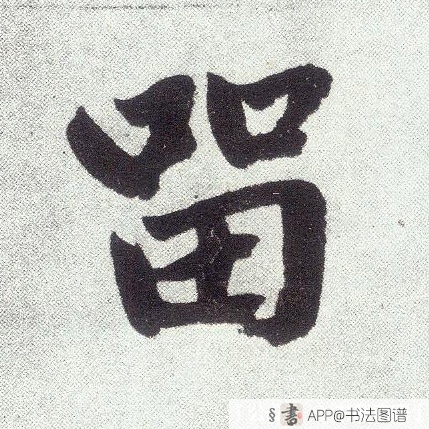 㽞
§ 書 APP@书法图谱